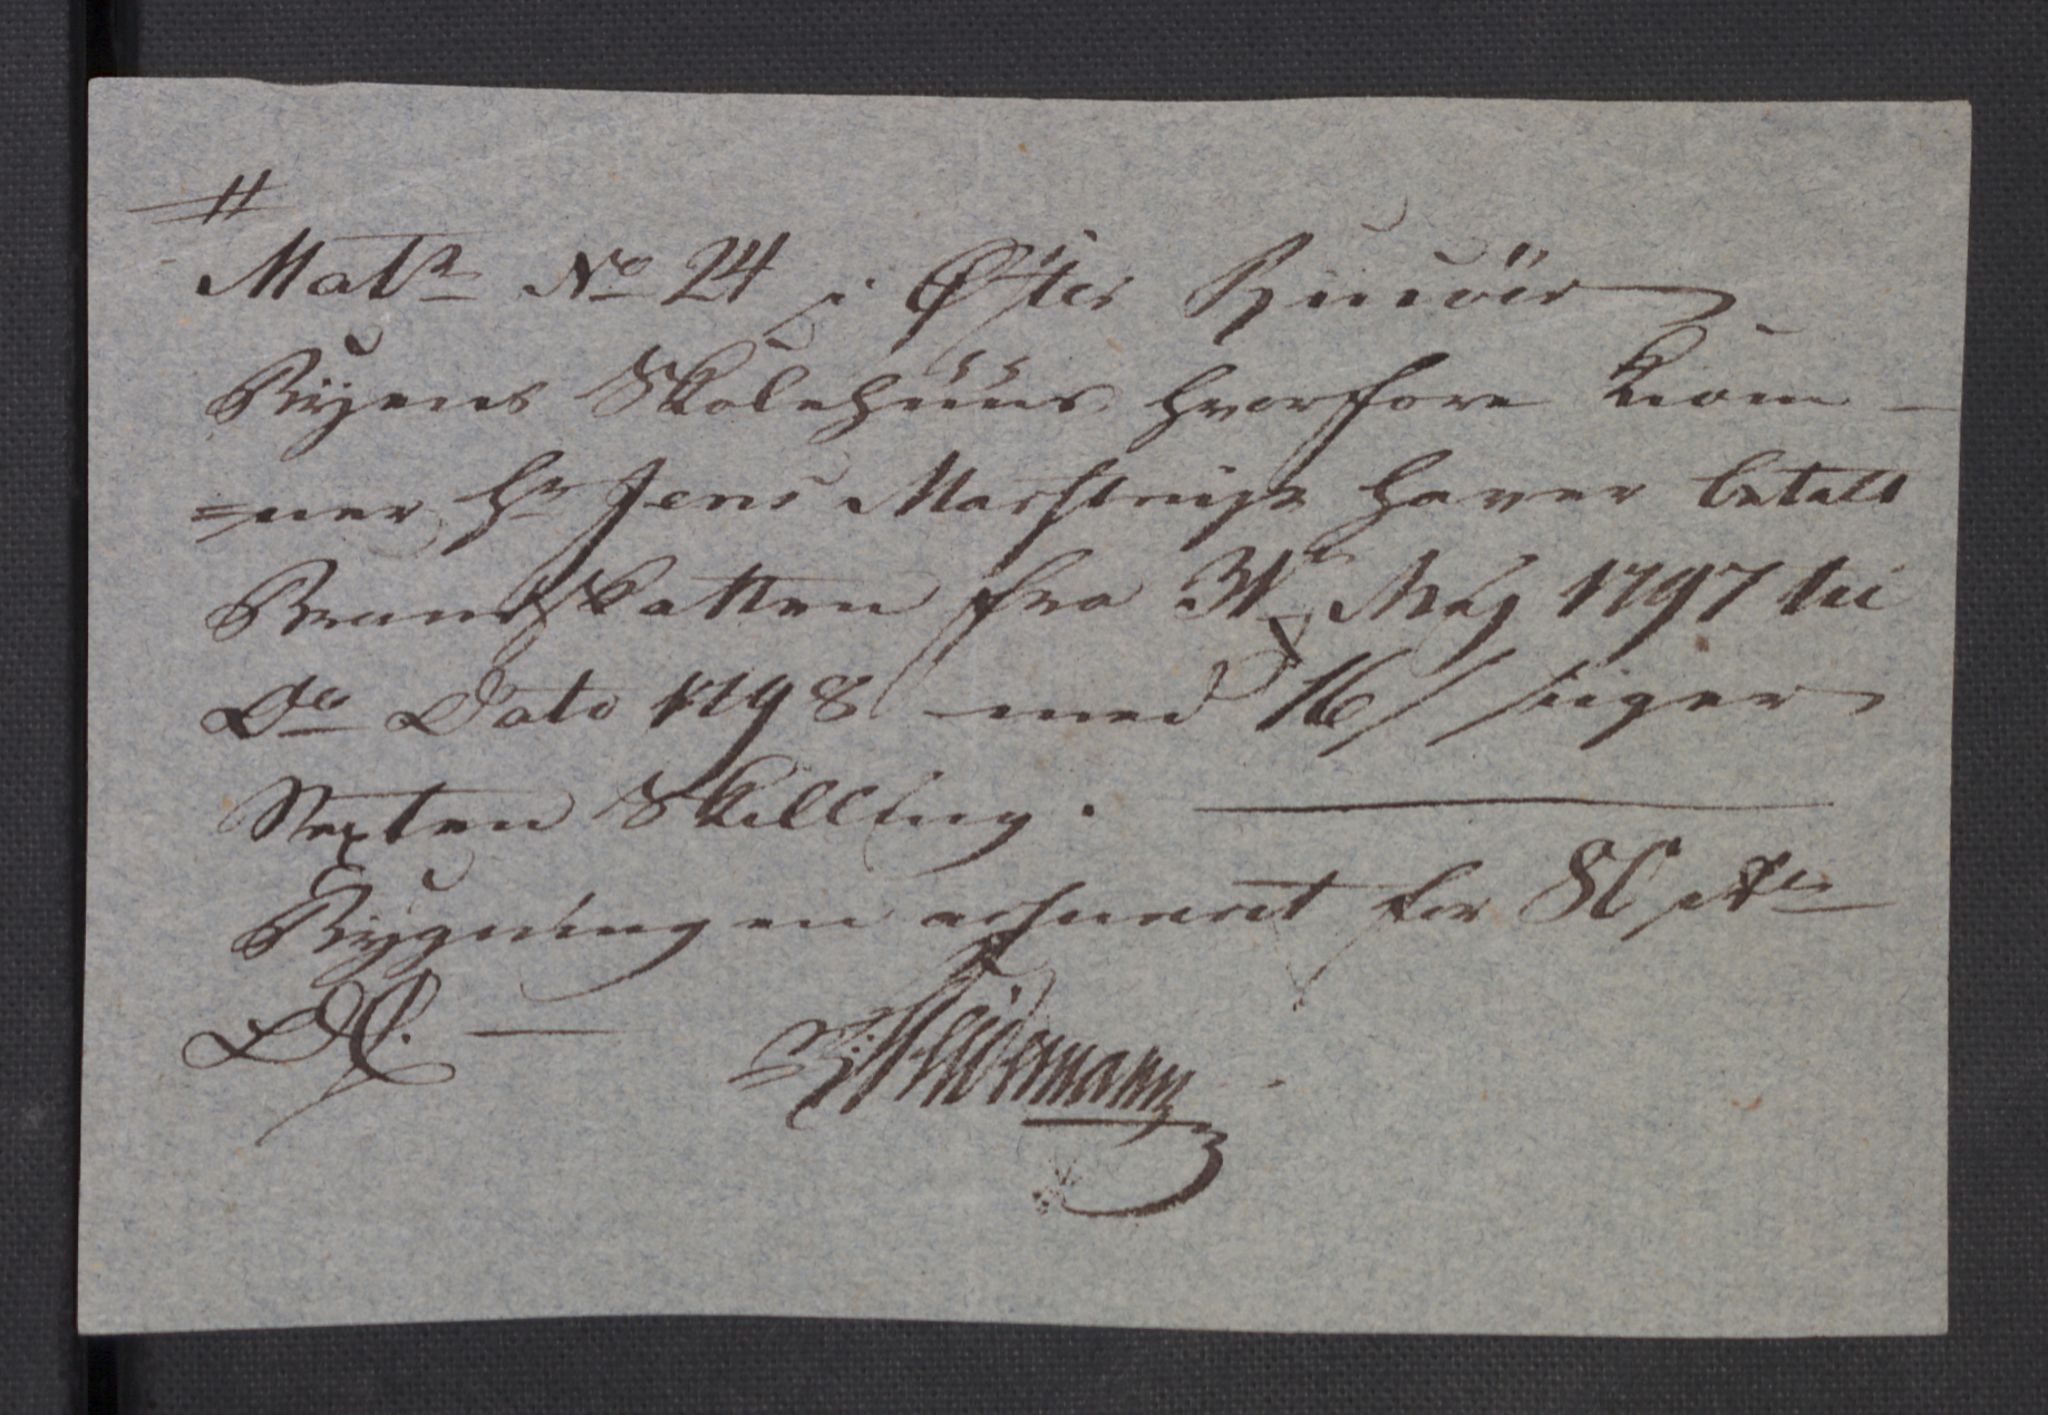 #
Mat<sup>r</sup> No 24 i Øster Riisöer
Byens Skolehuus hvorfore Kiæm-
=ner Hr Jens Marstrup haver betalt
Brandskatten fra 31te Maj 1797 til
Do Dato 1798 med 16 / siger
Sexten Skilling.
Bygningen assureret for
Heidemann